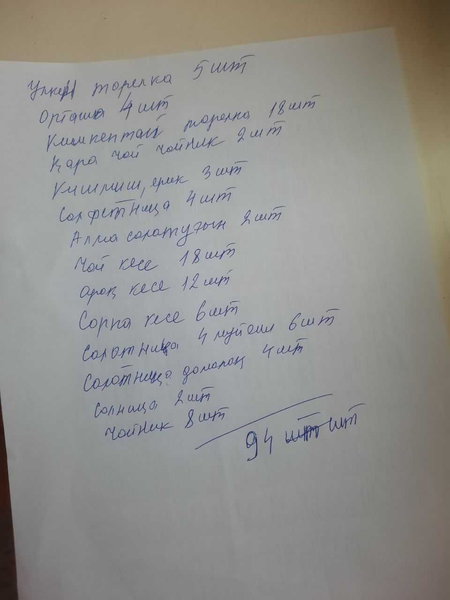 Үлкен тарелка 5 шт
Орташа 4 шт
Кишкентай тарелка 18 шт
Қара чай чойник 2 шт
Кишмиш, ерик 3 шт
Солфетница 4 шт
Алма солотугын 2 шт
Чай кесе 18 шт
Арақ кесе 12 шт
Сорпа кесе 6 шт
Солотница 4 муйсил 6 шт
Солотница домалақ 4 шт
Солница 2 шт
Чойник 8 шт
94 шт